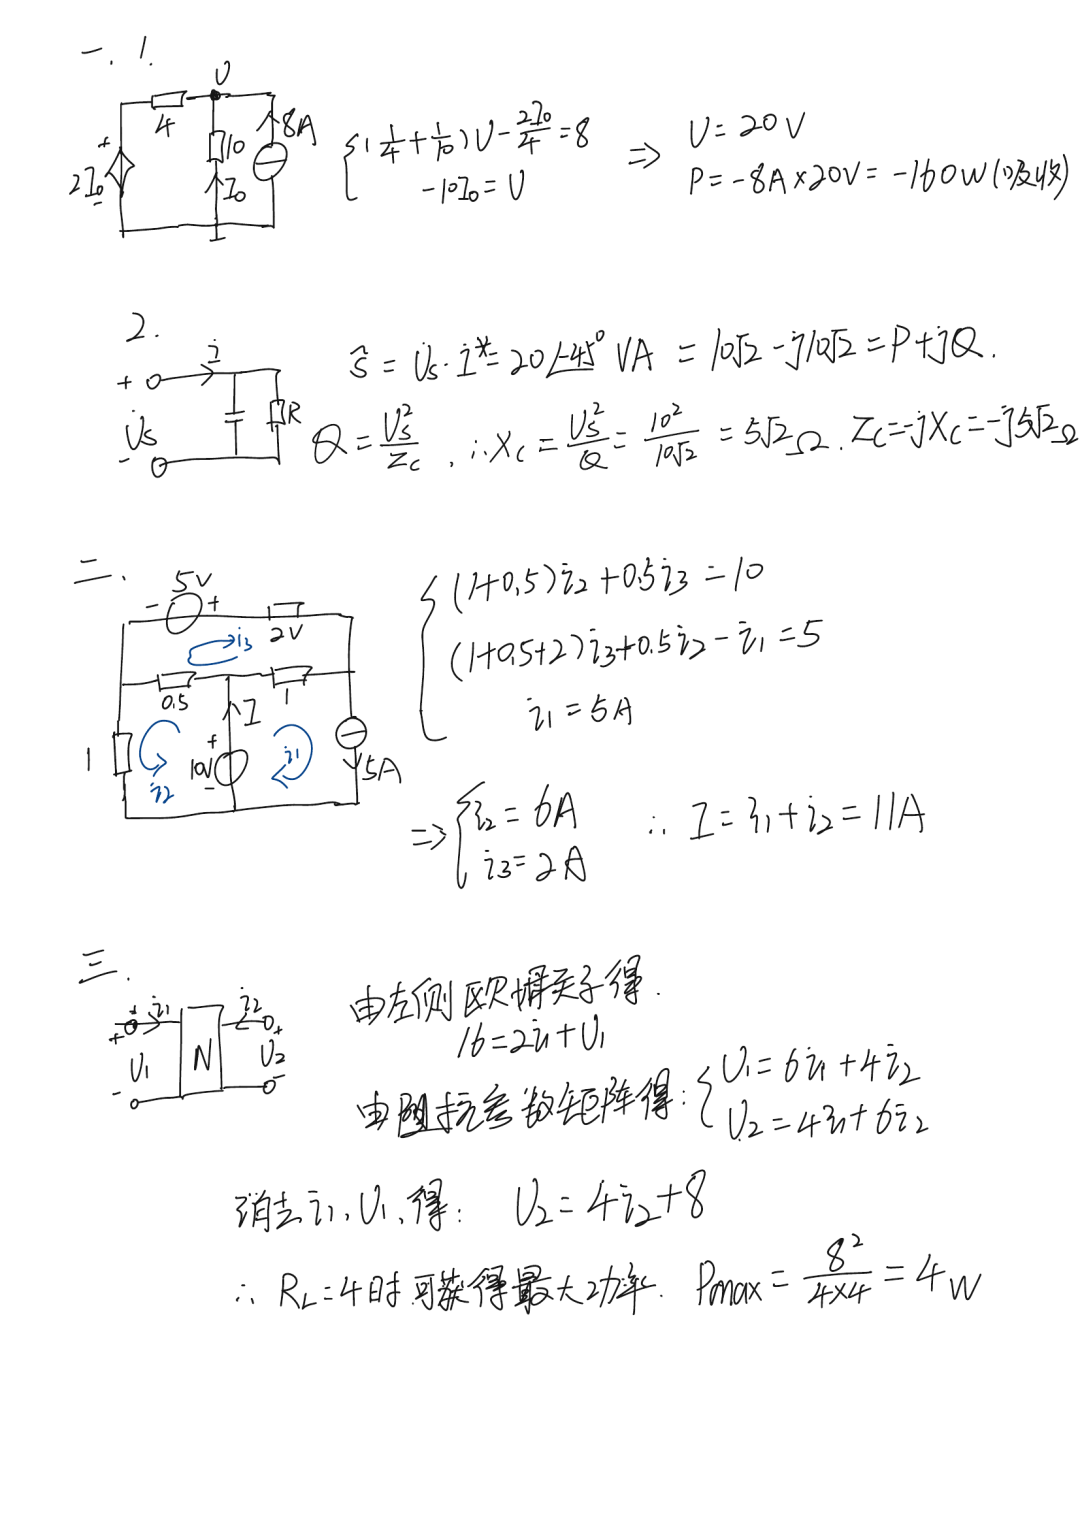 一.1.
U
4
10
8A
+
2I₀
-
I₀
{(1/4+1/10)U-2I₀/4=8
-10I₀=U
⇒
U=20V
P=-8A×20V=-160W(吸收)
2.
İ
+
U̇s
-
R
Ŝ=U̇s·İ*=20∠-45°VA=10√2-j10√2=P+jQ.
Q=Us²/Zc.∴Xc=Us²/Q=10²/10√2=5√2Ω.Zc=-jXc=-j5√2Ω
二.
5V
- +
2V
i₃
0.5
1
I
1
+
10V
-
i₂
i₁
5A
{(1+0.5)i₂+0.5i₃=10
(1+0.5+2)i₃+0.5i₂-i₁=5
i₁=5A
⇒{i₂=6A
i₃=2A
∴I=i₁+i₂=11A
三.
i₁
i₂
+
U₁
-
N
+
U₂
-
由左侧欧姆关系得.
16=2i₁+U₁
由阻抗参数矩阵得:{U₁=6i₁+4i₂
U₂=4i₁+6i₂
消去i₁,U₁,得: U₂=4i₂+8
∴R_L=4时可获得最大功率. Pmax=8²/4×4=4W